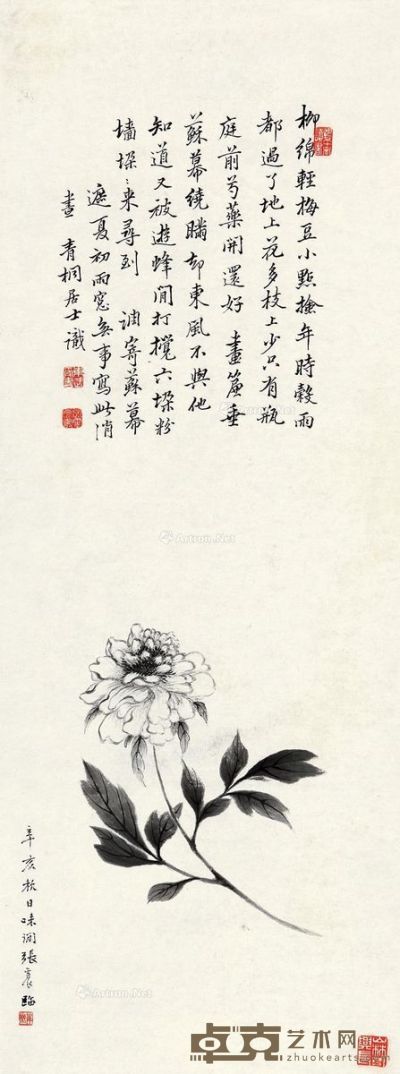 柳綿輕梅豆小點撿年時穀雨
都過了地上花多枝上少只有瓶
庭前芍藥開還好　畫簾垂
蘇幕繞曉却東風不與他
知道又被遊蜂閒打攪六垛粉
墻垛二來尋到　調寄蘇幕
遮夏初雨窓無事寫此消
晝　青桐居士識
辛亥秋日味閒張宸臨
Artron.Net
Artron.Net
卓克艺术网
zhuokearts.com